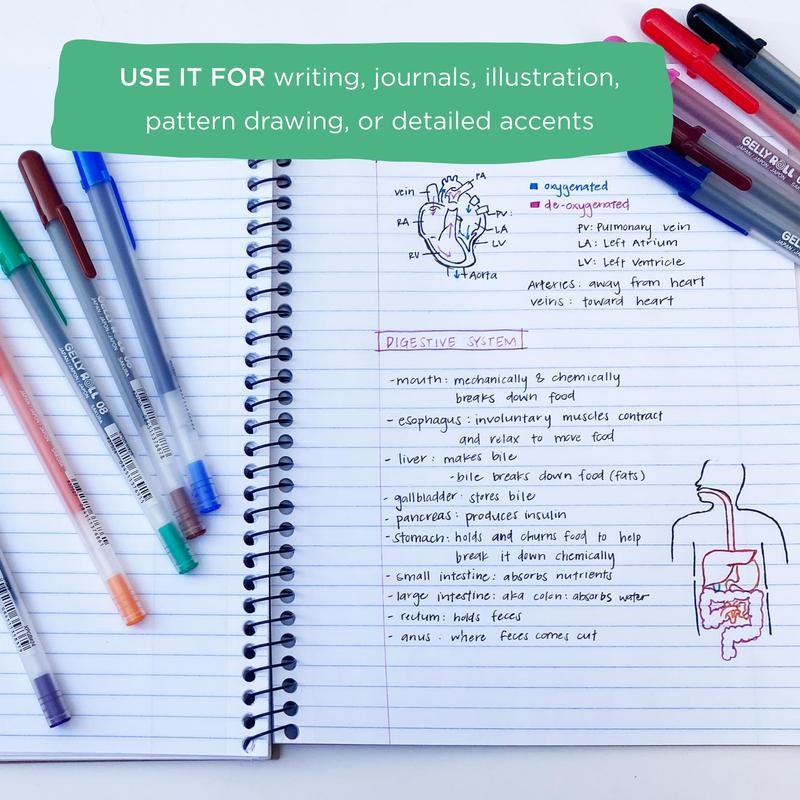 USE IT FOR writing, journals, illustration,
pattern drawing, or detailed accents
PA
vein
RA
RV
PV:
LA
LV
Aorta
oxygenated
de-oxygenated
PV: Pulmonary vein
LA: Left Atrium
LV: Left Ventricle
Arteries: away from heart
veins: toward heart
DIGESTIVE SYSTEM
-mouth: mechanically & chemically
breaks down food
- esophagus: involuntary muscles contract
and relax to move food
- liver: makes bile
-bile breaks down food (fats)
- gallbladder: stores bile
- pancreas: produces insulin
-stomach: holds and churns food to help
break it down chemically
- small intestine: absorbs nutrients
- large intestine: aka colon: absorbs water
- rectum: holds feces
- anus: where feces comes out
GELLY ROLL 08
JAPAN/JAPON/JAPÓN SAKURA
GELLY ROLL
JAPAN/JAPON/JAPÓN